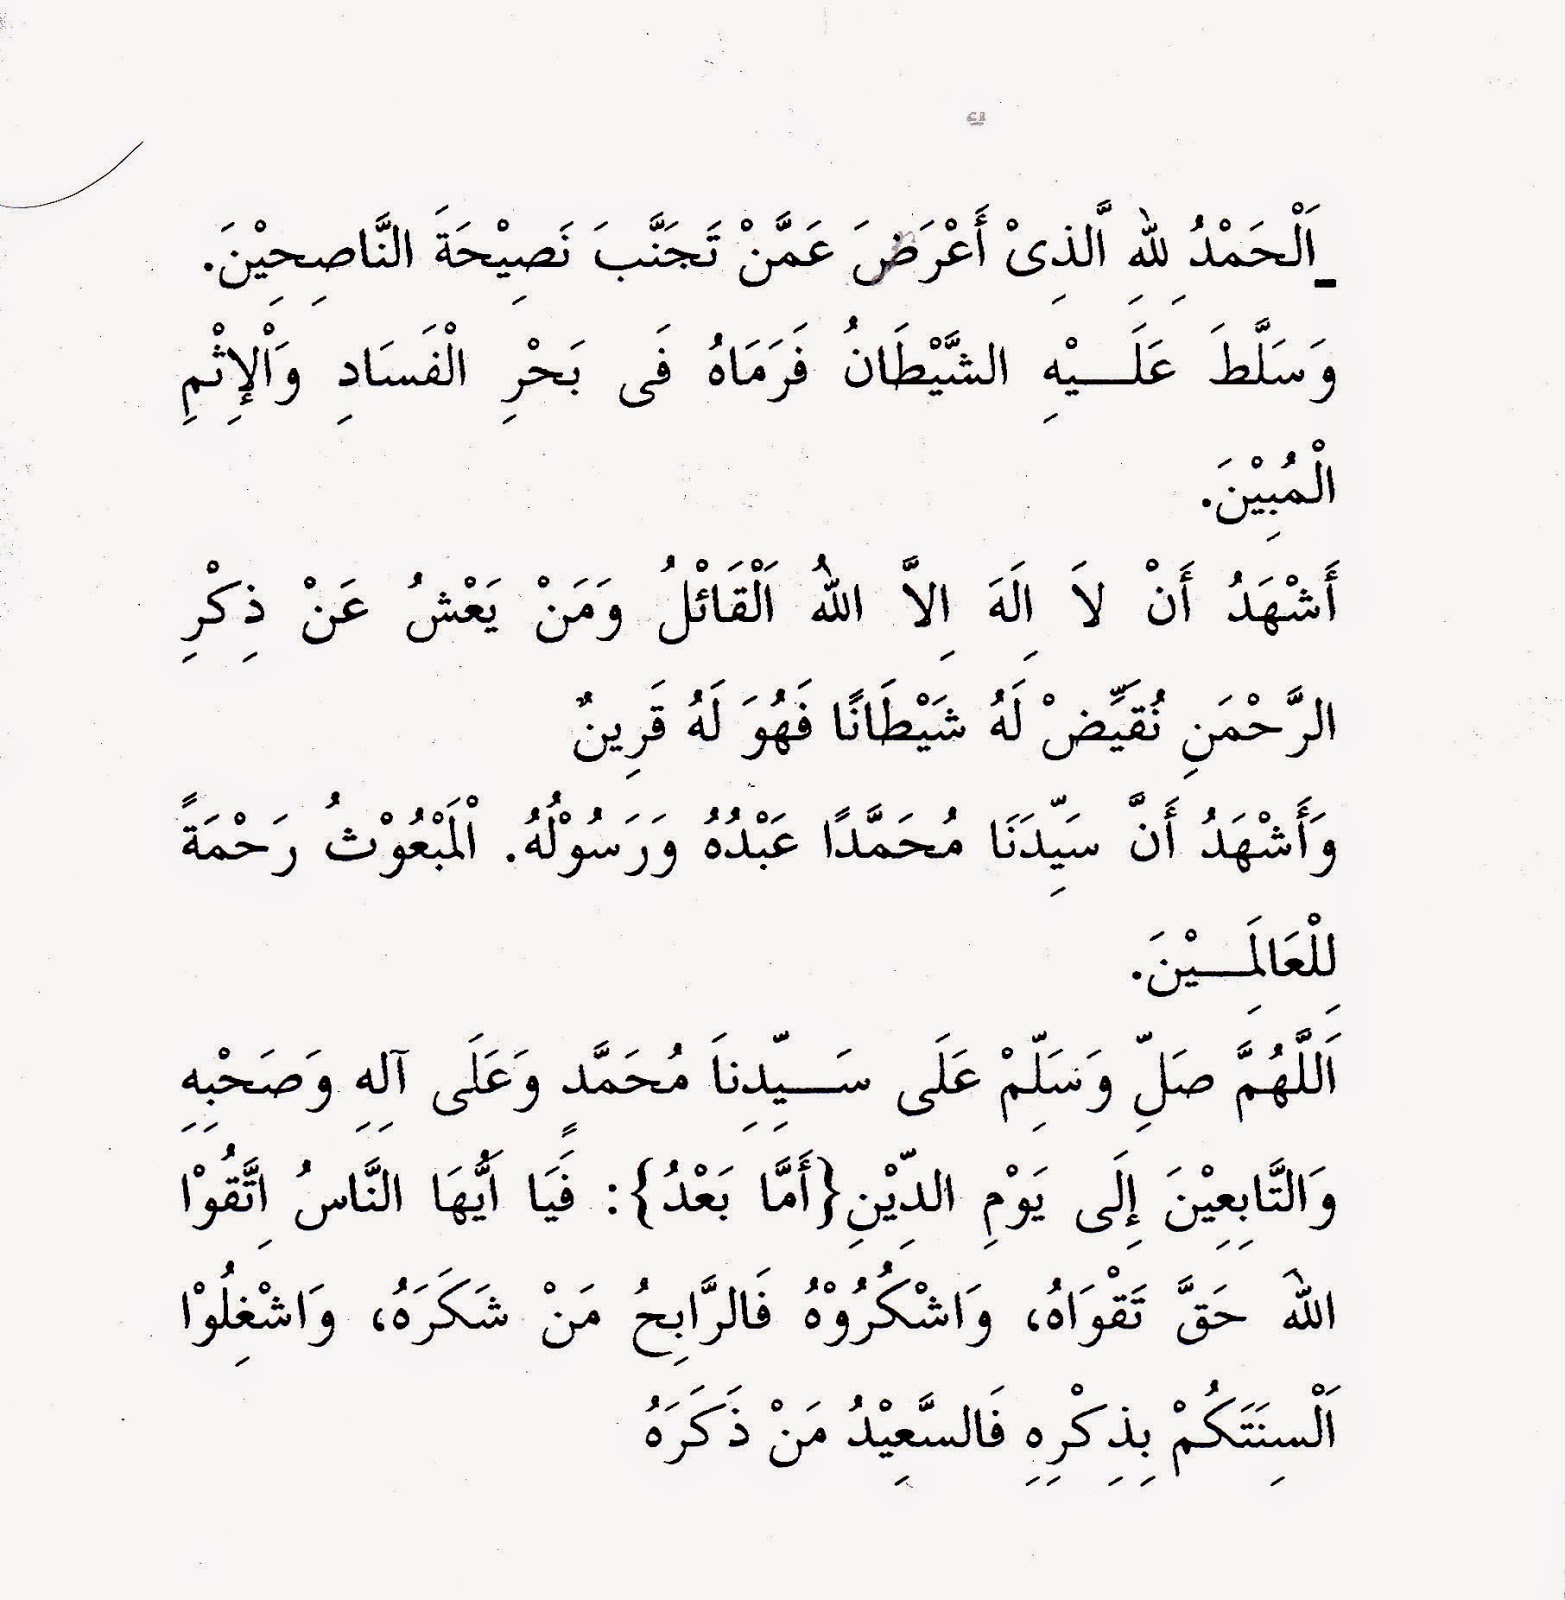 اَلْحَمْدُ لِلهِ الَّذِىْ أَعْرَضَ عَمَّنْ تَجَنَّبَ نَصِيْحَةَ النَّاصِحِيْنَ.
وَسَلَّطَ عَلَـــيْهِ الشَّيْطَانُ فَرَمَاهُ فَى بَحْرِ الْفَسَادِ وَاْلإِثْمِ
الْمُبِيْنَ.
أَشْهَدُ أَنْ لاَ اِلَهَ اِلاَّ اللهُ اَلْقَائْلُ وَمَنْ يَعْشُ عَنْ ذِكْرِ
الرَّحْمَنِ نُقَيِّضْ لَهُ شَيْطَانًا فَهُوَ لَهُ قَرِينٌ
وَأَشْهَدُ أَنَّ سَيِّدَنَا مُحَمَّدًا عَبْدُهُ وَرَسُوْلُهُ. الْمَبْعُوْثُ رَحْمَةً
لِلْعَالَمِـــيْنَ.
اَللَّهُمَّ صَلِّ وَسَلِّمْ عَلَى سَـــيِّدِناَ مُحَمَّدٍ وَعَلَى آلِهِ وَصَحْبِهِ
وَالتَّابِعِيْنَ إِلَى يَوْمِ الدِّيْنِ{أَمَّا بَعْدُ}: فَيَا اَيُّهَا النَّاسُ اِتَّقُوْا
اللهَ حَقَّ تَقْوَاهُ، وَاشْكُرُوْهُ فَالرَّابِحُ مَنْ شَكَرَهُ، وَاشْغِلُوْا
اَلْسِنَتَكُمْ بِذِكْرِهِ فَالسَّعِيْدُ مَنْ ذَكَرَهُ